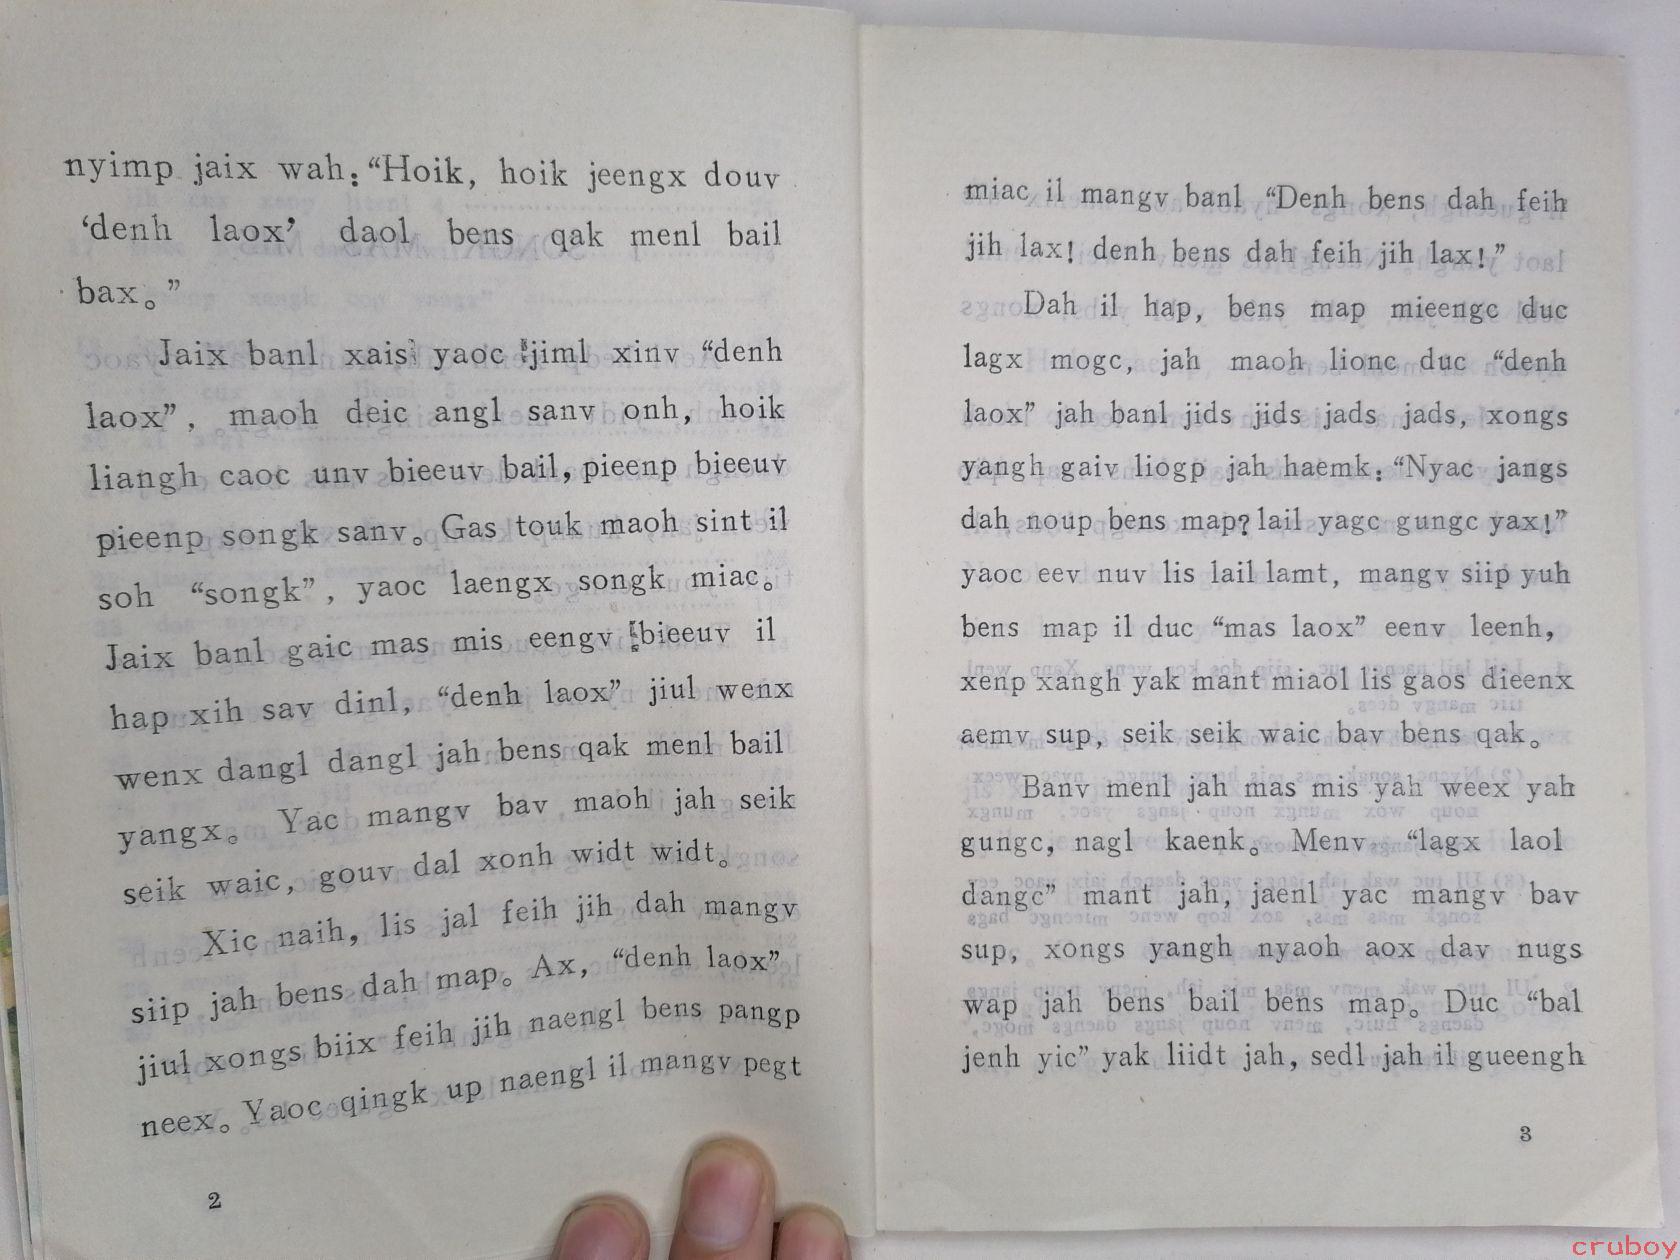 nyimp jaix wah:“Hoik, hoik jeengx douv
‘denh laox’ daol bens qak menl bail
bax。”
Jaix banl xais yaoc jiml xinv “denh
laox”, maoh deic angl sanv onh, hoik
liangh caoc unv bieeuv bail, pieenp bieeuv
pieenp songk sanv。Gas touk maoh sint il
soh “songk”, yaoc laengx songk miac。
Jaix banl gaic mas mis eengv bieeuv il
hap xih sav dinl, “denh laox” jiul wenx
wenx dangl dangl jah bens qak menl bail
yangx。 Yac mangv bav maoh jah seik
seik waic, gouv dal xonh widt widt。
Xic naih, lis jal feih jih dah mangv
siip jah bens dah map。Ax, “denh laox”
jiul xongs biix feih jih naengl bens pangp
neex。Yaoc qingk up naengl il mangv pegt
2
miac il mangv banl “Denh bens dah feih
jih lax! denh bens dah feih jih lax!”
Dah il hap, bens map mieengc duc
lagx mogc, jah maoh lionc duc “denh
laox” jah banl jids jids jads jads, xongs
yangh gaiv liogp jah haemk:“Nyac jangs
dah noup bens map? lail yagc gungc yax!”
yaoc eev nuv lis lail lamt, mangv siip yuh
bens map il duc “mas laox” eenv leenh,
xenp xangh yak mant miaol lis gaos dieenx
aemv sup, seik seik waic bav bens qak。
Banv menl jah mas mis yah weex yah
gungc, nagl kaenk。Menv “lagx laol
dangc” mant jah, jaenl yac mangv bav
sup, xongs yangh nyaoh aox dav nugs
wap jah bens bail bens map。Duc “bal
jenh yic” yak liidt jah, sedl jah il gueengh
3
cruboy